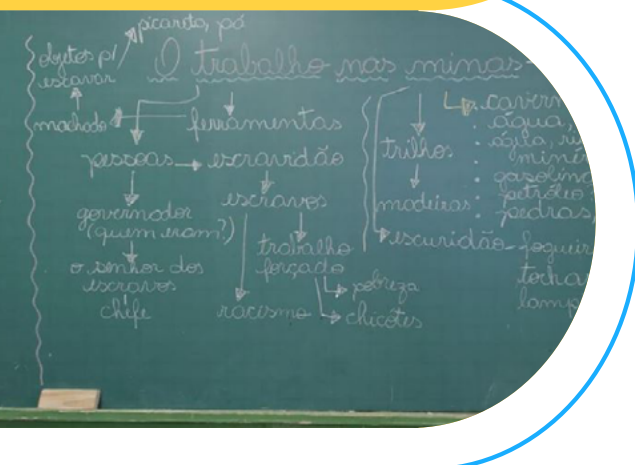 picareta, pá
objetos p/
escavar
O trabalho nas minas
machado
ferramentas
pessoas
escravidão
escravos
governador
(quem eram?)
o senhor dos
escravos
chefe
trabalho
forçado
racismo
pobreza
chicotes
trilhos
madeiras
escuridão
cavern
água,
miné
gasolin
petróleo
pedras,
fogueir
tocha
lamp